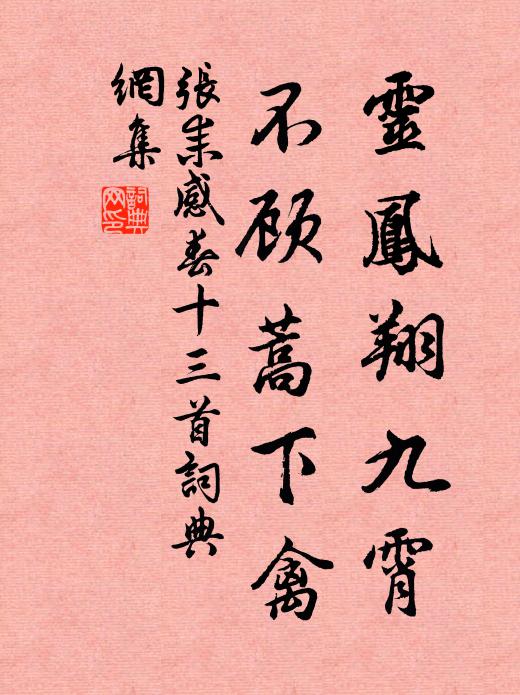 靈鳳翔九霄
不顧蒿下禽
張耒感春十三首詞典
網集
詞典
网印